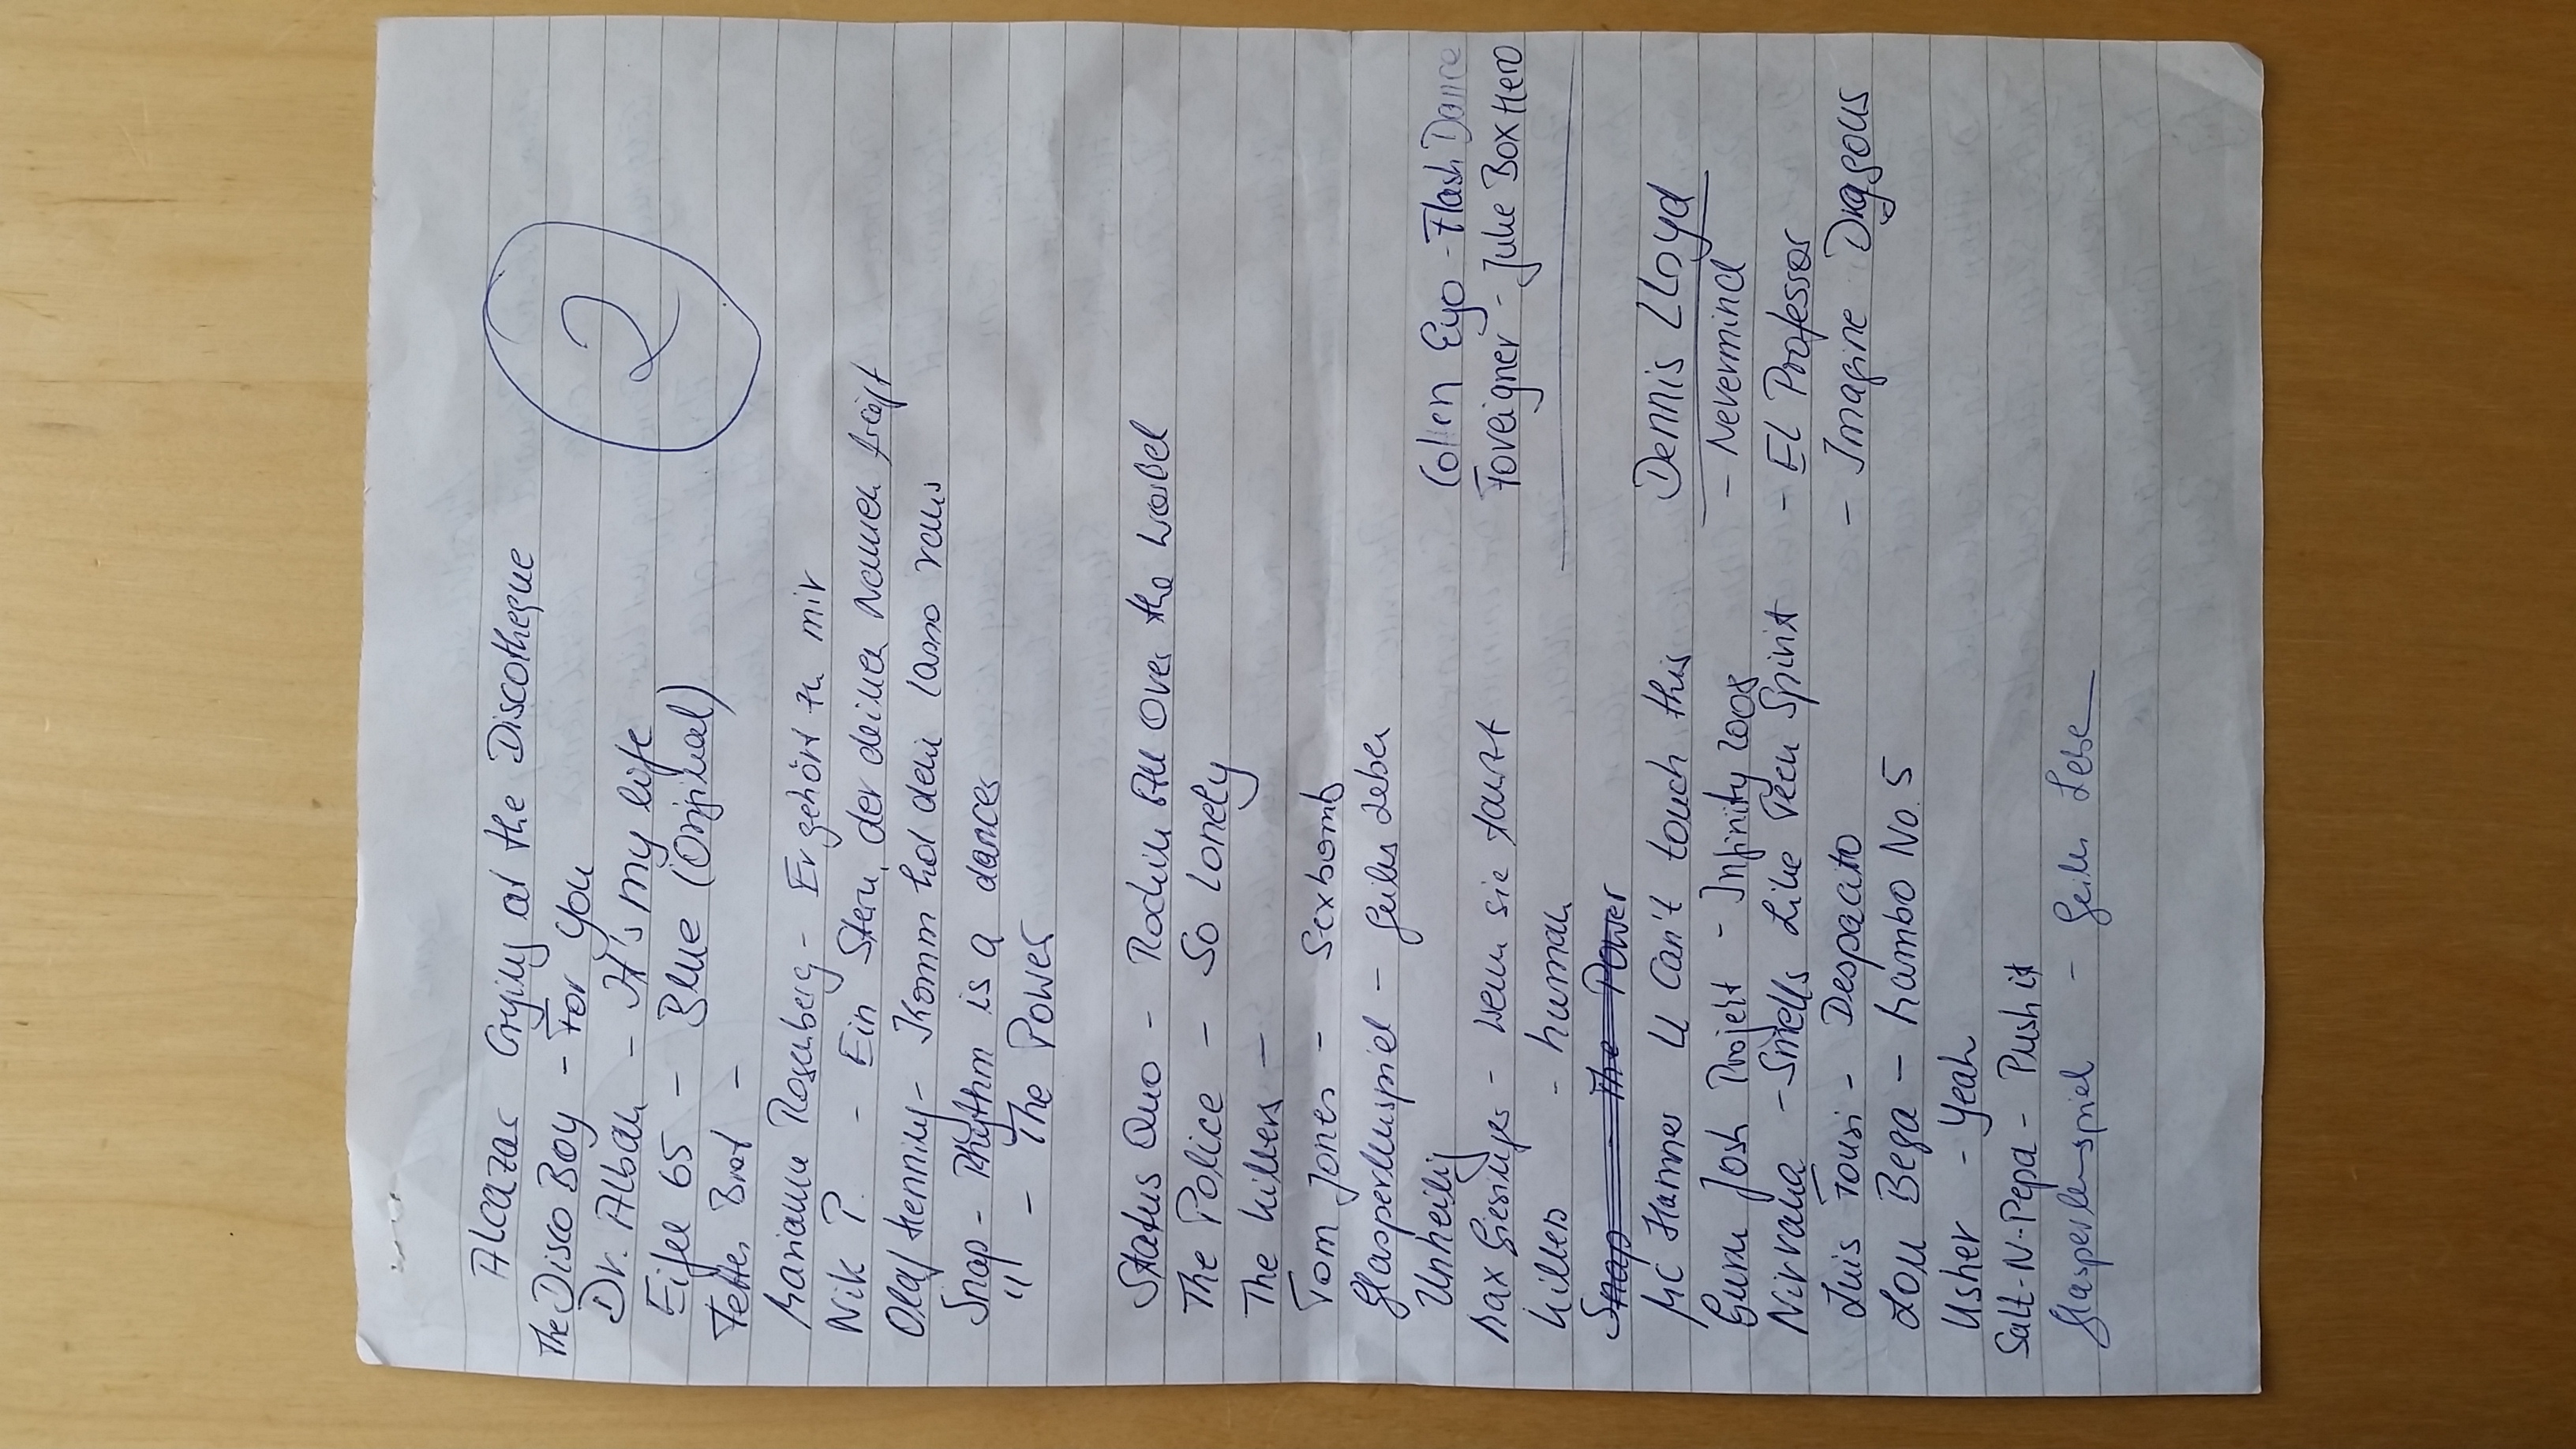 Alcazar Crying at the Discotheque
2
The Disco Boy - For you
Dr. Alban - It's my life
Eifel 65 - Blue (Original)
Fettes Brot -
Marianne Rosenberg - Er gehört zu mir
Nik P. - Ein Stern, der deinen Namen trägt
Olaf Henning - Komm hol dein Lasso raus
Snap - Rhythm is a dancer
" - The Power
Status Quo - Rockin All Over the World
The Police - So lonely
The Killers -
Tom Jones - Sexbomb
Glasperlenspiel - Geiles Leben
Unheilig
Max Giesinger - Wenn sie tanzt
Killers - human
Snap - The Power
MC Hammer U Can't touch this
Guru Josh Projekt - Infinity 2008
Nirvana - Smells Like Teen Spirit
Luis Fonsi - Despacito
Lou Bega - Mambo No. 5
Usher - Yeah
Salt-N-Pepa - Push it
Glasperlenspiel - Geiles Leben
Eyo - Flash Dance
Foreigner - Juke Box Hero
Dennis LLoyd
- Nevermind
- El Professor
- Imagine Draggons